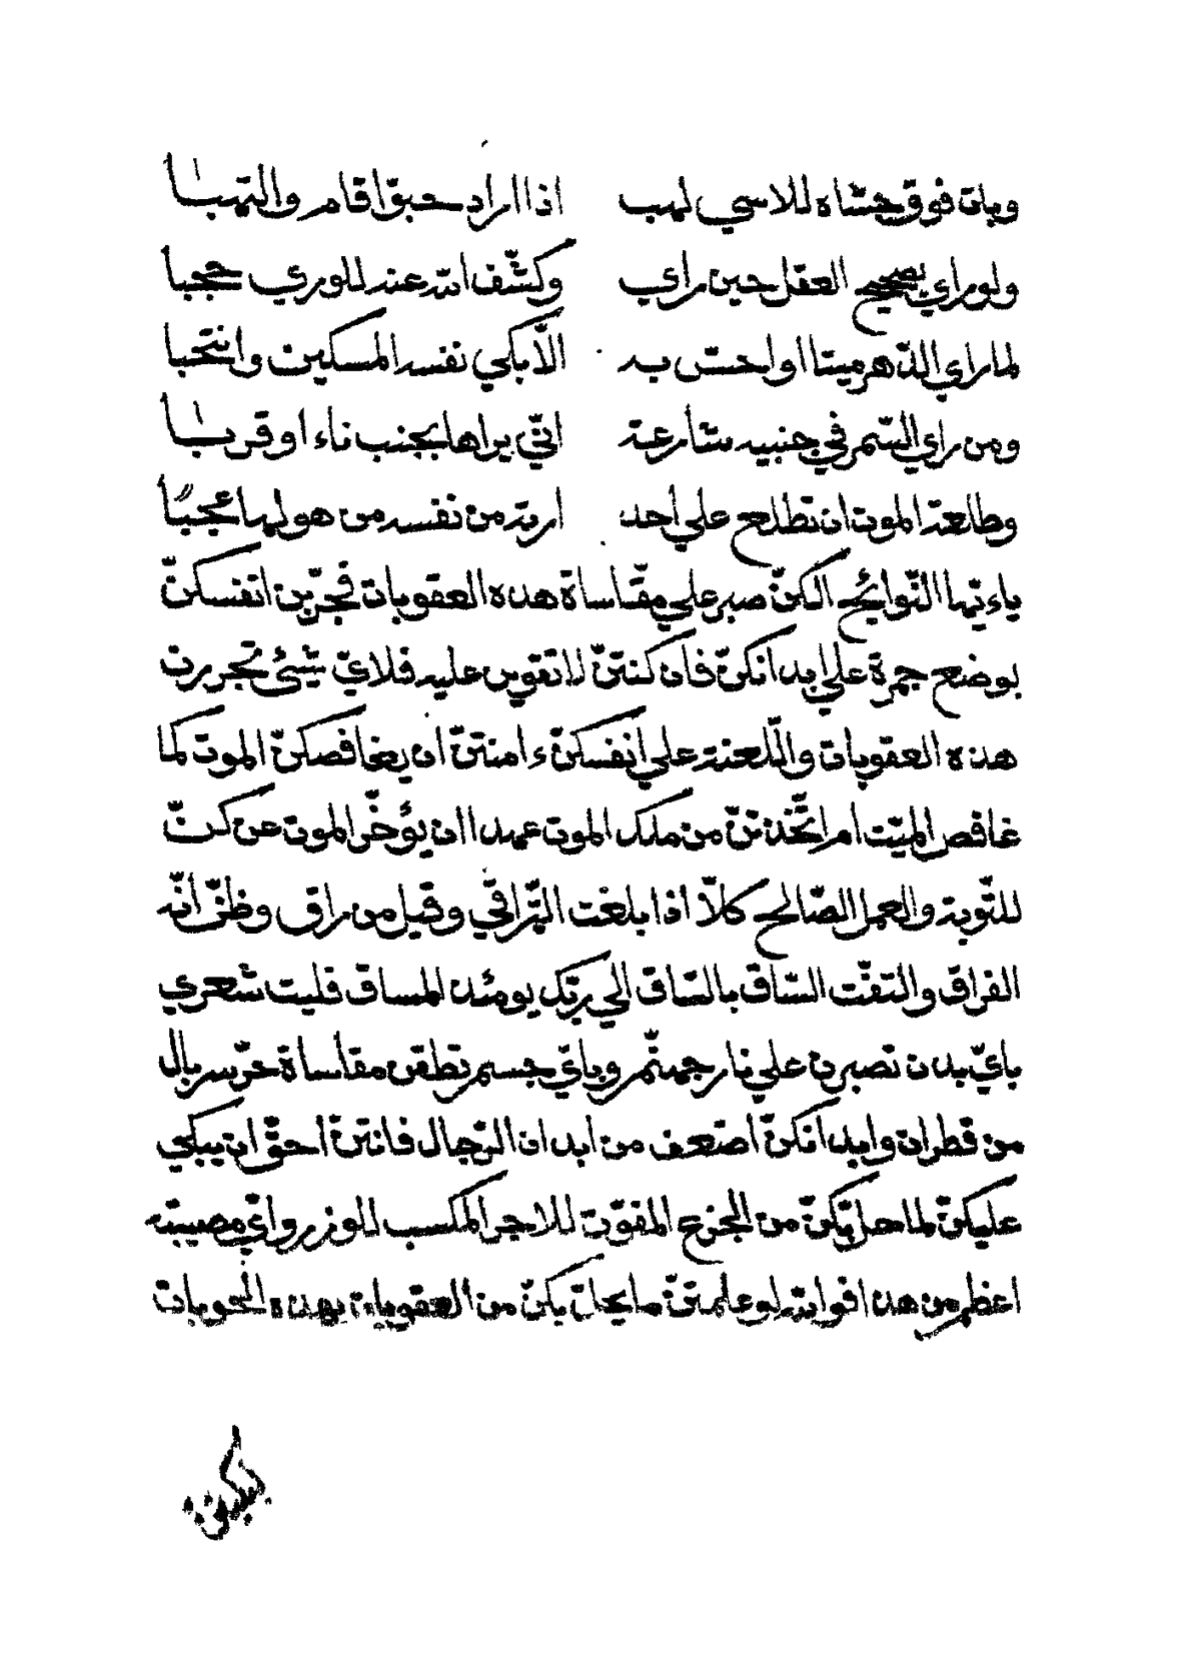 وبات فوق حشاه للاسي لهب اذا اراد خبوّا قام والتهبا
ولو راي بصحيح العقل حين راي وكشّف الله عنه للوري حجبا
لما راي الدّهر ميتا او احسّ به الاّ بكي نفسه المسكين وانتحبا
ومن راي السّمر في جنبيه شارعة انّي يراها بجنب ناء او قربا
وطالعة الموت ان تطلع علي أحد ارته من نفسه من هولها عجبًا
ياءيّها النّوايح الكنّ صبر علي مقاساة هذه العقوبات فجرّبن انفسكنّ
بوضع جمرة علي ابدانكنّ فان كنتنّ لا تقوين عليه فلايّ شيئ تجررن
هذه العقوبات واللّعنة علي أنفسكنّ ءامنتنّ ان يغافصكنّ الموت كما
غافص الميّت ام اتّخذتنّ من ملك الموت عهدا ان يؤخّر الموت عن كنّ
للتّوبة والعمل الصّالح كلاّ اذا بلغت التّراقي وقيل من راق وظنّ انّه
الفراق والتفّت السّاق بالسّاق الي ربّك يومئذ المساق فليت شعري
بايّ بدن تصبرن علي نار جهنّم وبايّ جسم تطقن مقاساة حرّ سربال
من قطران وابدانكنّ اضعف من ابدان الرّجال فانتنّ احقّ ان يبكي
عليكنّ لما حلّ بكنّ من الجزع المفوّت للاجر المكسب للوزر وايّ مصيبة
اعظم من هذا فوالله لو علمتنّ ما يحلّ بكنّ من العقوبات بهذه الحوبات